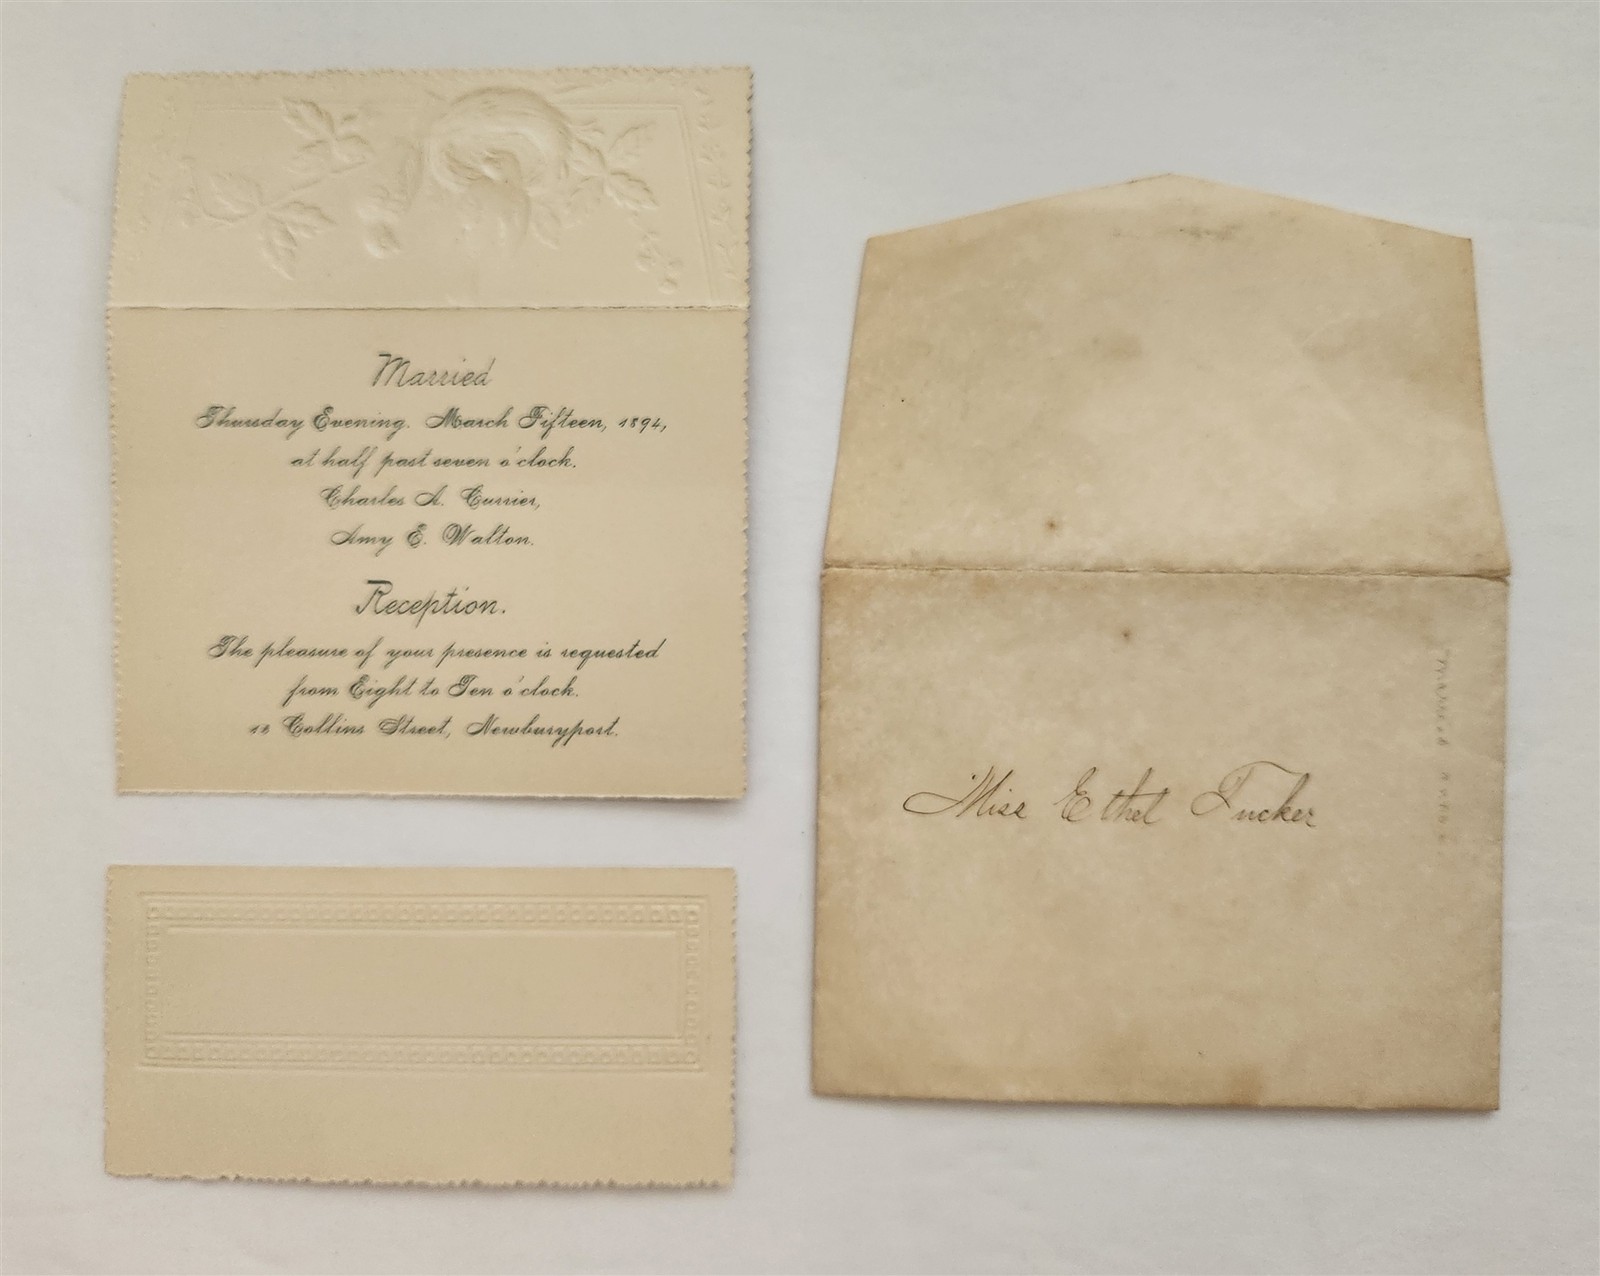 Married
Thursday Evening. March Fifteen, 1894,
at half past seven o'clock.
Charles A. Currier,
Amy E. Walton.
Reception.
The pleasure of your presence is requested
from Eight to Ten o'clock.
12 Collins Street, Newburyport.
Miss Ethel Tucker